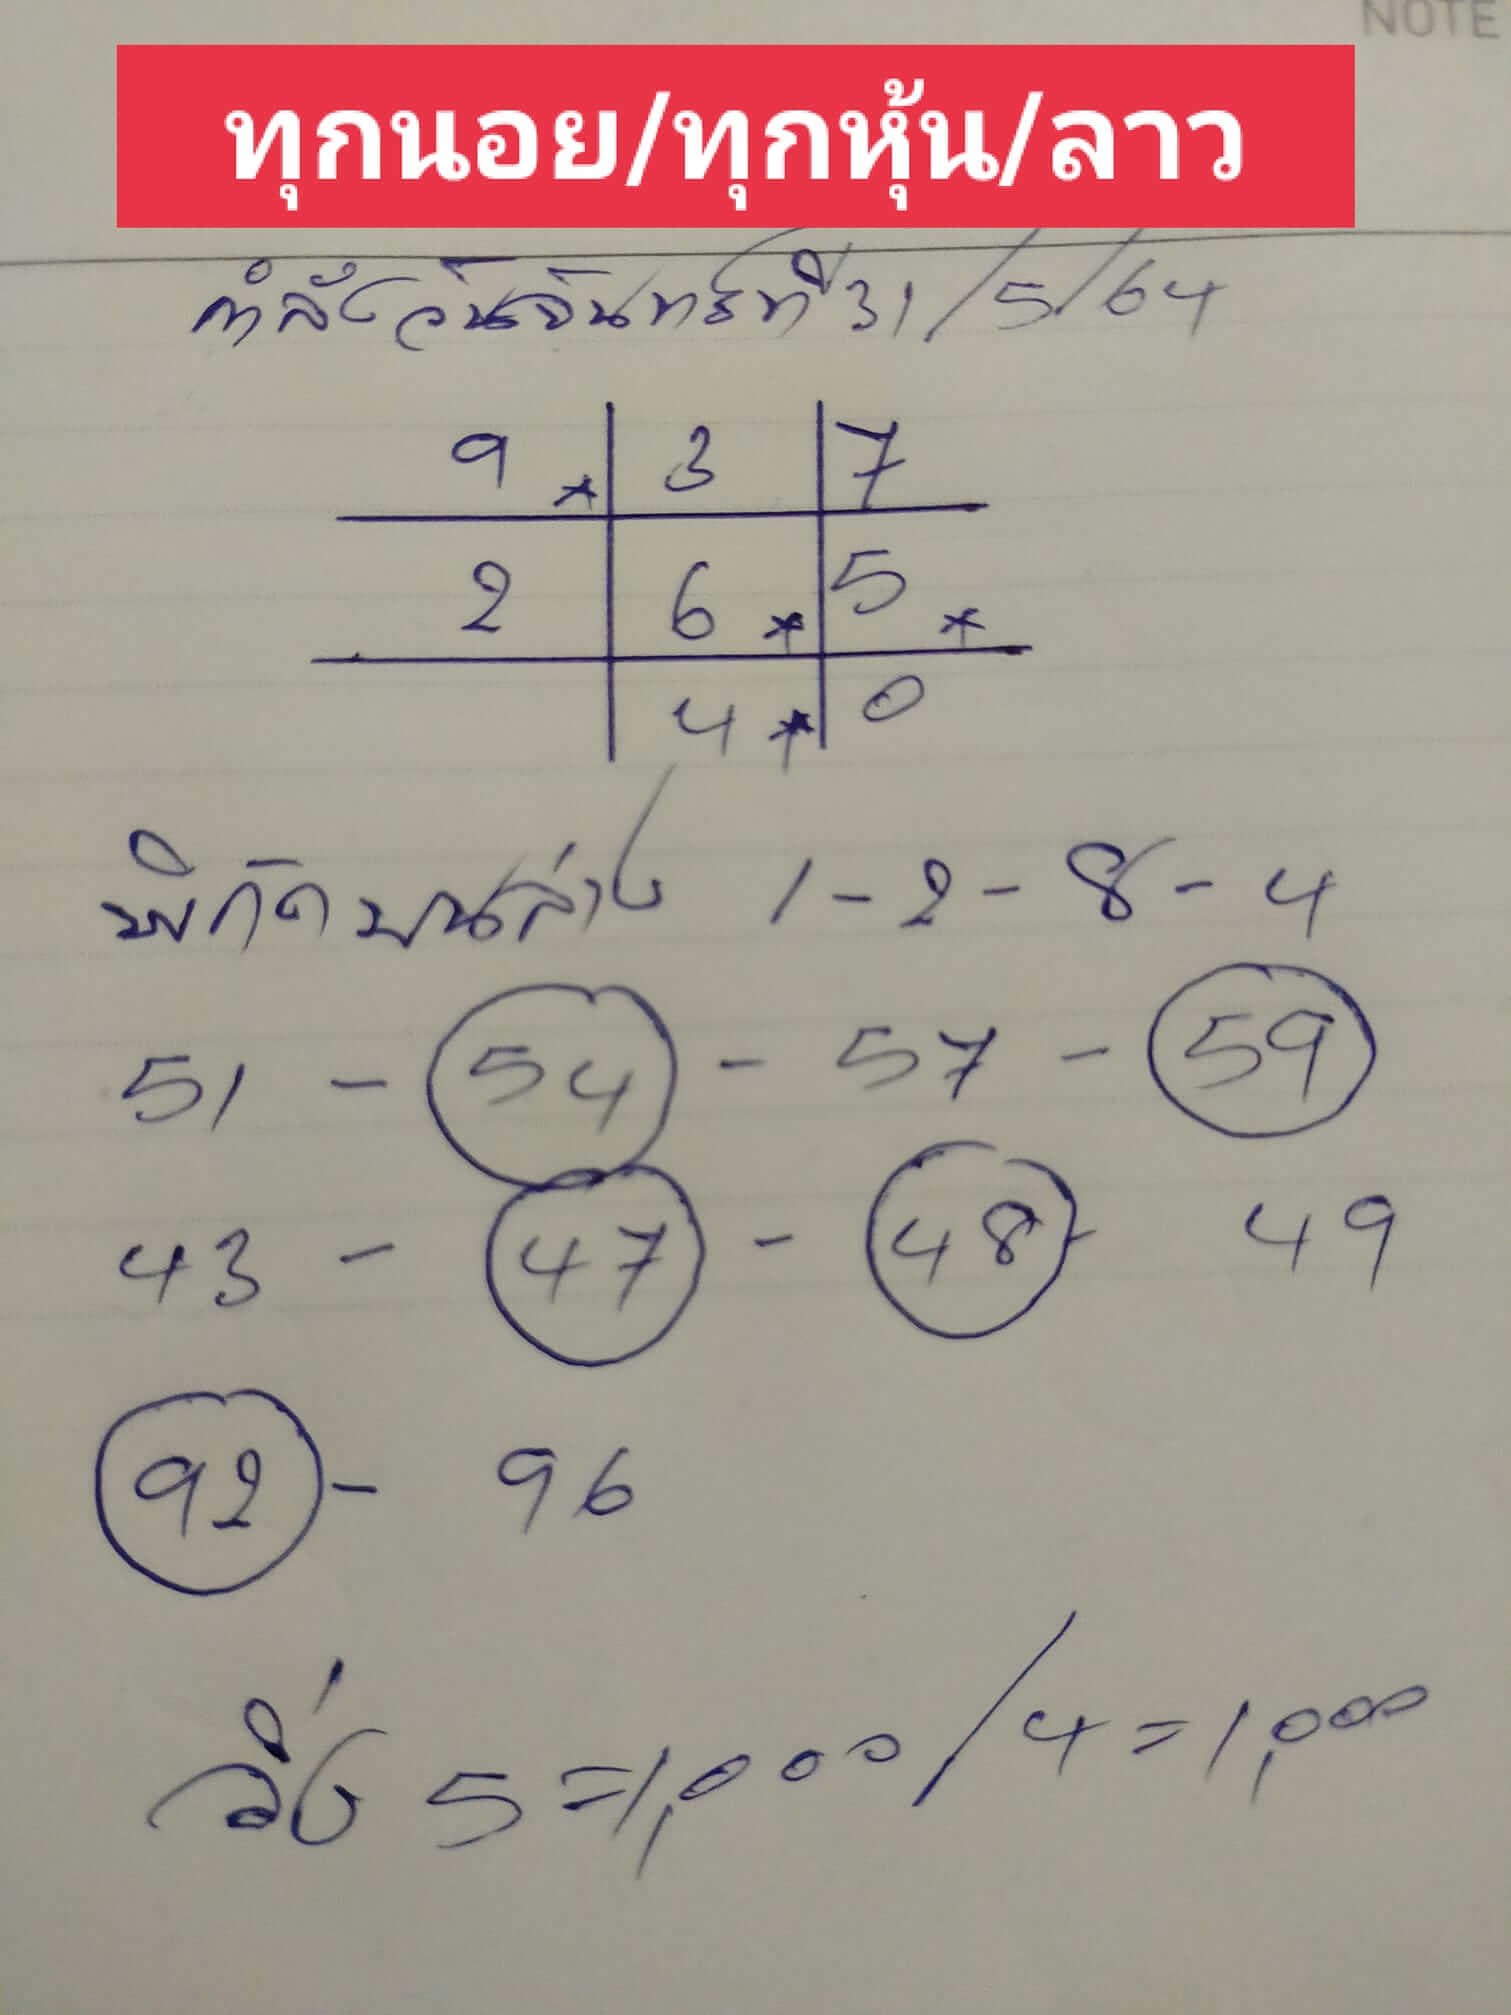 NOTE
ทุกนอย/ทุกหุ้น/ลาว
กำลังวันจันทร์ที่ 31/5/64
9 * 3 7
2 6 * 5 *
4 * 0
พิกัดบนล่าง 1 - 2 - 8 - 4
51 - 54 - 57 - 59
43 - 47 - 48 - 49
92 - 96
วิ่ง 5 = 1,000 / 4 = 1,000